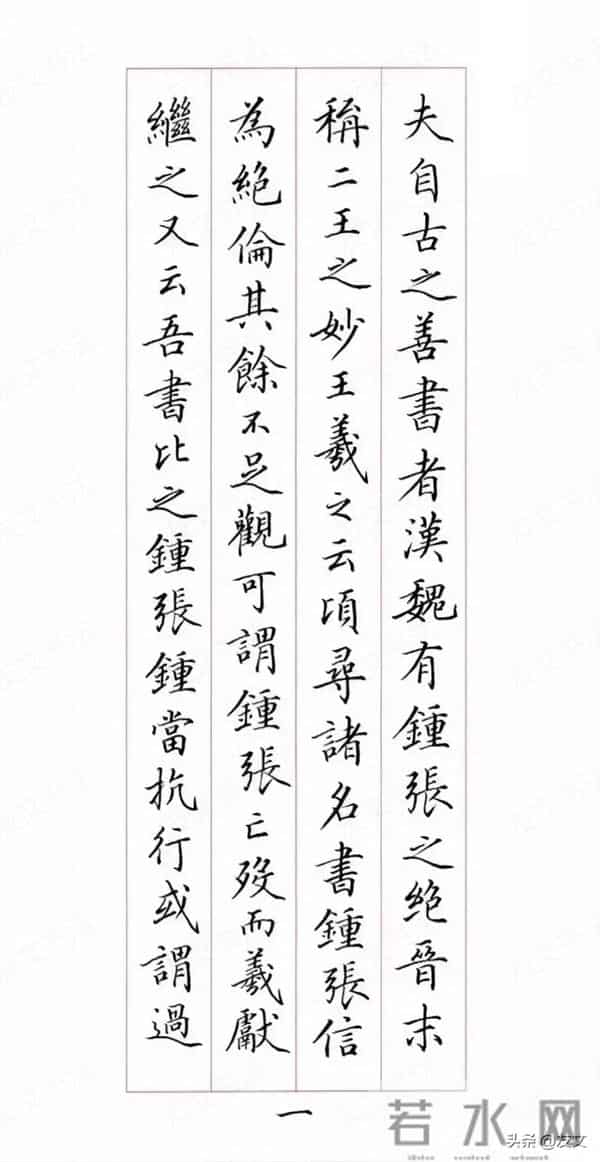 夫自古之善書者漢魏有鍾張之絕晉末
稱二王之妙王羲之云頃尋諸名書鍾張信
為絕倫其餘不足觀可謂鍾張亡歿而羲獻
繼之又云吾書比之鍾張鍾當抗行或謂過
一
若水网
头条@友文